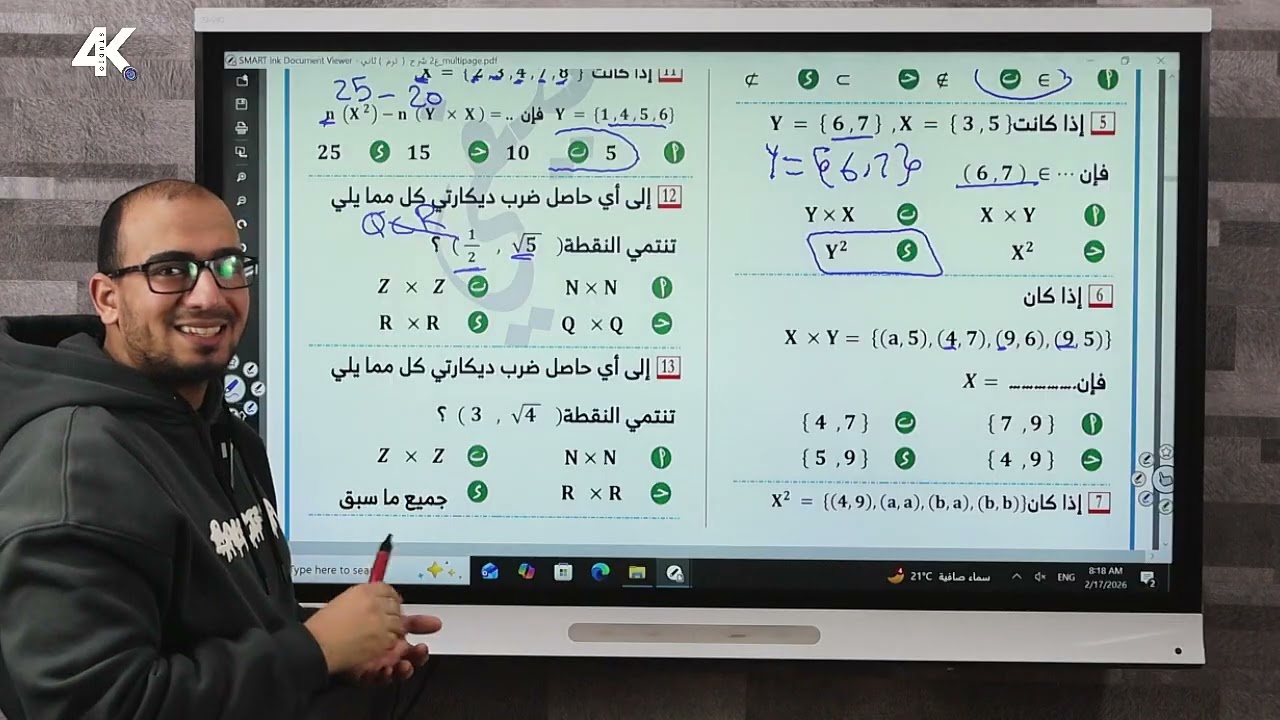 4K
STUDIO
SMART Ink Document Viewer - ع2 شرح ( ترم ) ثاني_multipage.pdf
∈ ∉ ⊂ ⊄
5 إذا كانت X = {3 , 5}, Y = {6 , 7}
Y = {6,7}
فإن (6 , 7) ∈ ...
X × Y
Y × X
X²
Y²
6 إذا كان
X × Y = {(a, 5), (4, 7), (9, 6), (9, 5)}
فإن ............. X =
{7 , 9}
{4 , 7}
{4 , 9}
{5 , 9}
7 إذا كان X² = {(4, 9), (a, a), (b, a), (b, b)}
11 إذا كانت X = {2, 3, 4, 7, 8}
25 - 20
Y = {1, 4, 5, 6} فإن n (X²) − n (Y × X) = ..
5 10 15 25
12 إلى أي حاصل ضرب ديكارتي كل مما يلي
Q R
تنتمي النقطة ( √5 , 1/2 ) ؟
N × N
Z × Z
Q × Q
R × R
13 إلى أي حاصل ضرب ديكارتي كل مما يلي
تنتمي النقطة ( √4 , 3 ) ؟
N × N
Z × Z
R × R
جميع ما سبق
Type here to sear
21°C سماء صافية
ENG
8:18 AM
2/17/2026